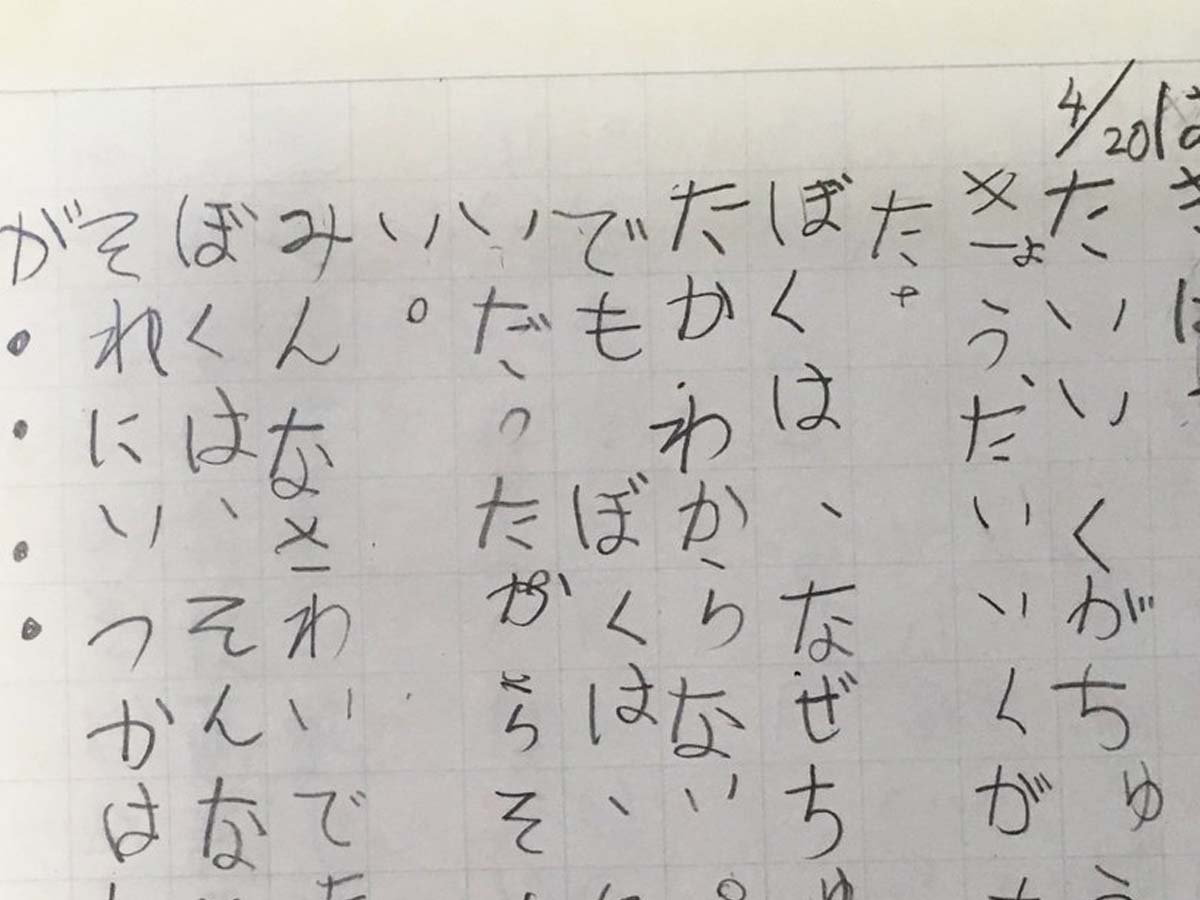 4/20
たいいくがちゅう
きょうだいいくが
た。
ぼくは、なぜちゅ
たかわからない。
でもぼくは、
いだったからそ
い。
みんなきわいで
ぼくは、そんな
それにいつかは
が・・・・